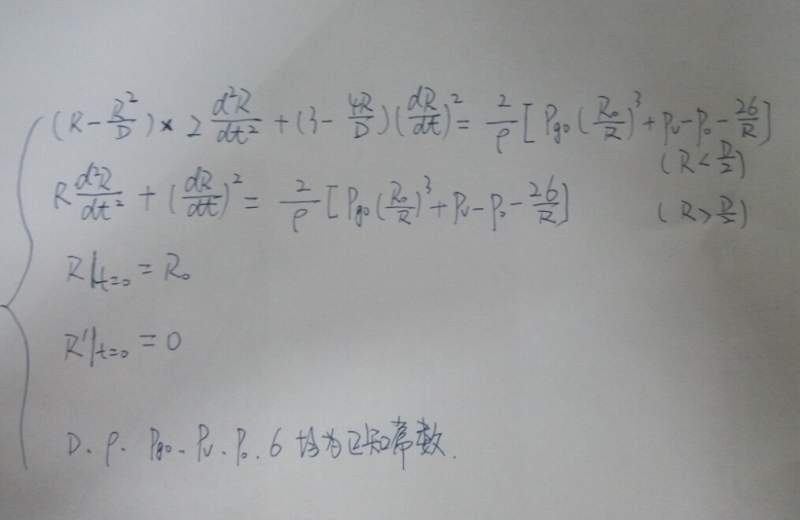 (R - R²/D) × 2 d²R/dt² + (3 - 4R/D)(dR/dt)² = 2/ρ [Pg₀(R₀/R)³ + Pv - P₀ - 2σ/R] (R < D/2)
R d²R/dt² + (dR/dt)² = 2/ρ [Pg₀(R₀/R)³ + Pv - P₀ - 2σ/R] (R > D/2)
R|t=0 = R₀
R'|t=0 = 0
D、ρ、Pg₀、Pv、P₀、σ 均为已知常数.